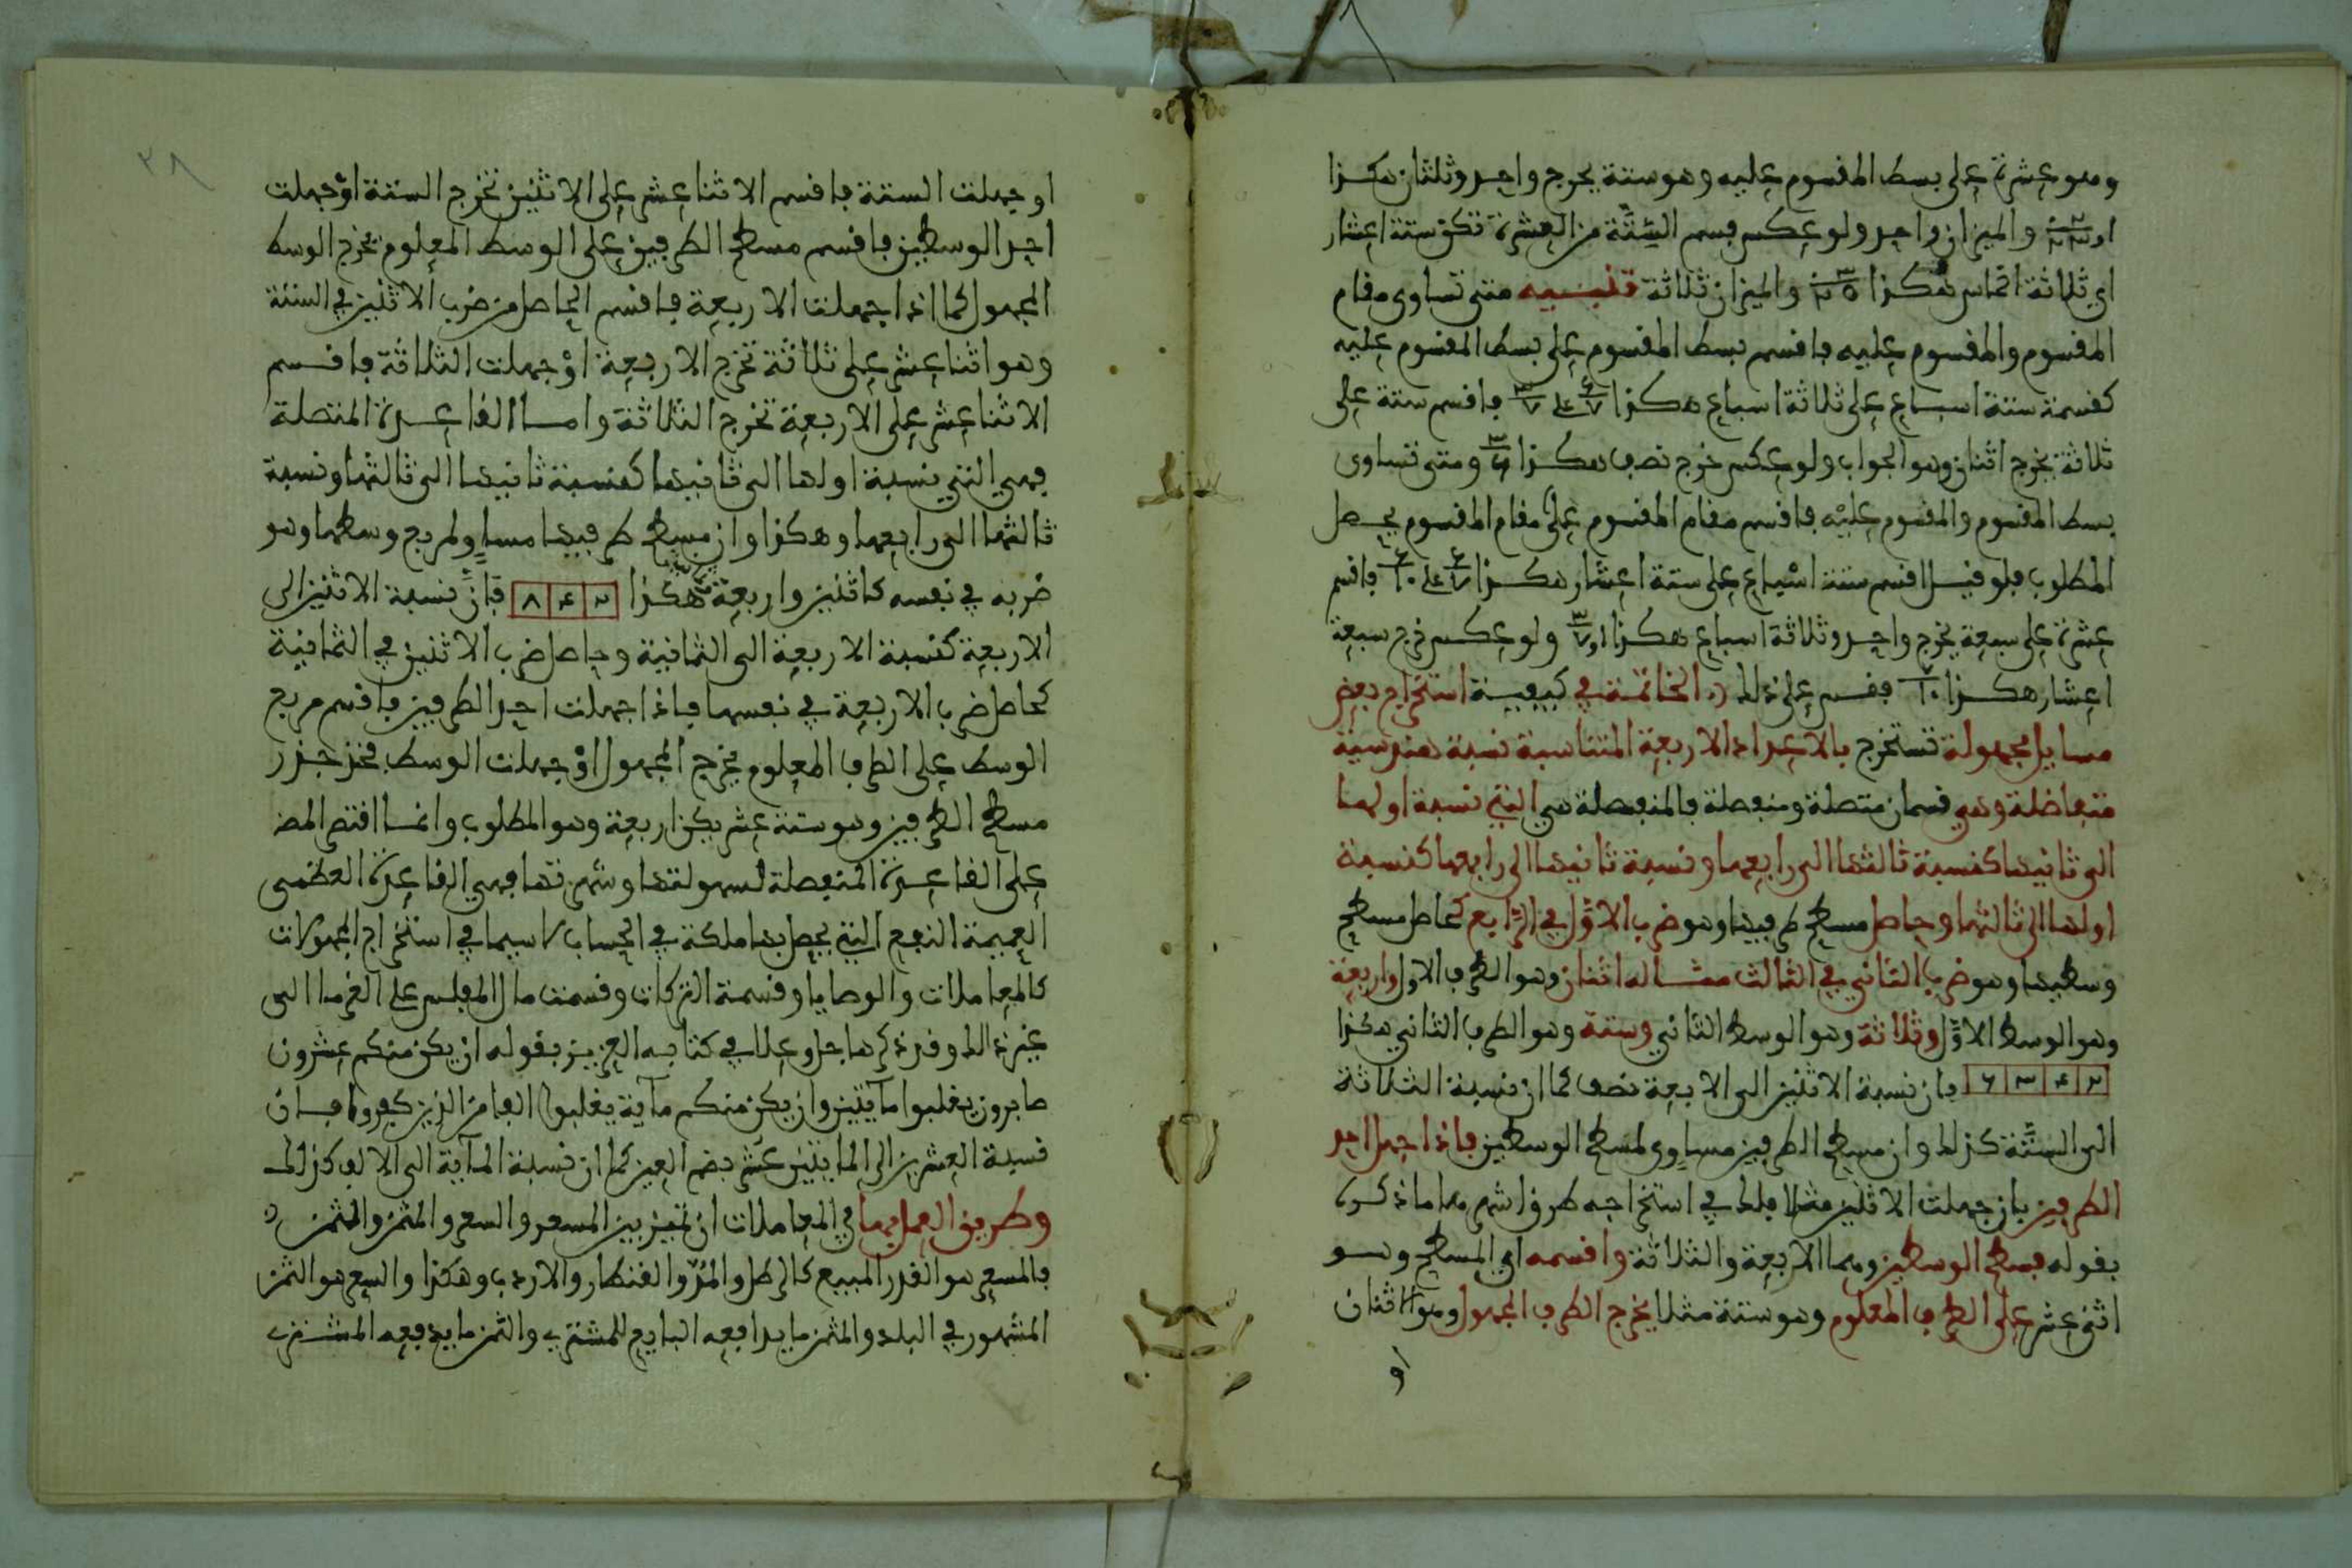 وهو عشرة على بسط المقسوم عليه وهو ستة يخرج واحد وثلثان هكذا
او ٢/٣ والميزان واحد ولو عكس قسم الستة من العشرة تكن ستة اعشار
اي ثلاثة اخماس هكذا ٣/٥ والميزان ثلاثة تنبيه متى تساوى مقام
المقسوم والمقسوم عليه فاقسم بسط المقسوم على بسط المقسوم عليه
كقسمة ستة اسباع على ثلاثة اسباع هكذا ٦/٧ على ٣/٧ فاقسم ستة على
ثلاثة يخرج اثنان وهو الجواب ولو عكس خرج نصف هكذا ومتى تساوى
بسط المقسوم والمقسوم عليه فاقسم مقام المقسوم على مقام المقسوم يحصل
المطلوب فلو قيل اقسم ستة اسباع على ستة اعشار هكذا ٦/٧ على ٦/١٠ فاقسم
عشرة على سبعة يخرج واحد وثلاثة اسباع هكذا ا و ٣/٧ ولو عكس خرج سبعة
اعشار هكذا ٧/١٠ فقس على ذلك الخاتمة في كيفية استخراج بعض
مسايل مجهولة تستخرج بالاعداد الاربعة المتناسبة نسبة هندسية
متفاضلة وهي قسمان متصلة ومنفصلة فالمنفصلة هي التي نسبة اولها
الى ثانيها كنسبة ثالثها الى رابعها ونسبة ثانيها الى رابعها كنسبة
اولها الى ثالثها وحاصل مسطح طرفيها وهو ضرب الاول في الرابع كحاصل مسطح
وسطيها وهو ضرب الثاني في الثالث مثاله اثنان وهو الطرف الاول واربعة
وهو الوسط الاول وثلاثة وهو الوسط الثاني وستة وهو الطرف الثاني هكذا
٢ ٤ ٣ ٦ فان نسبة الاثنين الى الاربعة نصف كما ان نسبة الثلاثة
الى الستة كذلك وان مسطح الطرفين مساوى لمسطح الوسطين فاذا جهل احد
الطرفين بان جهلت الاثنين مثلا فلك في استخراجه طرق اشهرها ما ذكره
بقوله فسطح الوسطين وهما الاربعة والثلاثة واقسمه اي المسطح وهو
اثنى عشر على الطرف المعلوم وهو ستة مثلا يخرج الطرف المجهول وهو الاثنان
او
٣٨
او جهلت الستة فاقسم الاثنا عشر على الاثنين تخرج الستة او جهلت
احد الوسطين فاقسم مسطح الطرفين على الوسط المعلوم يخرج الوسط
المجهول كما اذا جهلت الاربعة فاقسم الحاصل من ضرب الاثنين في الستة
وهو اثنا عشر على ثلاثة تخرج الاربعة او جهلت الثلاثة فاقسم
الاثنا عشر على الاربعة تخرج الثلاثة واما القاعدة المتصلة
فهي التي نسبة اولها الى ثانيها كنسبة ثانيها الى ثالثها ونسبة
ثالثها الى رابعها وهكذا وان مسطح طرفيها مساو لمربع وسطها وهو
ضربه في نفسه كاثنين واربعة هكذا ٢ ٤ ٨ فان نسبة الاثنين الى
الاربعة كنسبة الاربعة الى الثمانية وحاصل ضرب الاثنين في الثمانية
كحاصل ضرب الاربعة في نفسها فاذا جهلت احد الطرفين فاقسم مربع
الوسط على الطرف المعلوم يخرج المجهول او جهلت الوسط فخذ جذر
مسطح الطرفين وهو ستة عشر يكن اربعة وهو المطلوب وانما اقتصر المص
على القاعدة المنفصلة لسهولتها وشهرتها فهي القاعدة العظمى
العميمة النفع التي يحصل بها ملكة في الحساب لا سيما في استخراج المجهولات
كالمعاملات والوصايا وقسمة التركات وقسمت مال المفلس على الغرما الى
غير ذلك وقد ذكرها جل وعلا في كتابه العزيز بقوله ان يكن منكم عشرون
صابرون يغلبوا مأيتين وان يكن منكم مآية يغلبوا الفا من الذين كفروا فان
نسبة العشرين الى المايتين عشر بضم العين كما ان نسبة المآية الى الالف كذلك
وطريق العمل بها في المعاملات ان تميز بين المسعر والسعر والمثمن والثمن
فالمسعر هو القدر المبيع كالرطل والمد والقنطار والاردب وهكذا والسعر هو الثمن
المشهور في البلد والمثمن ما يدافعه البايع للمشتري والثمن ما يدفعه المشتري